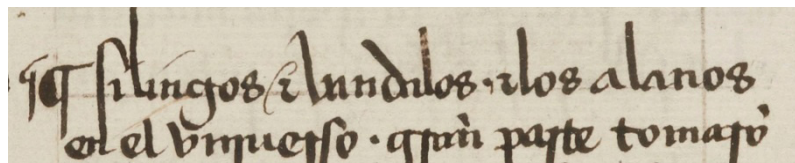 ¶ silingos ⁊ bundalos · ⁊ los alanos
en el vniuersso · grãn parte tomarõ